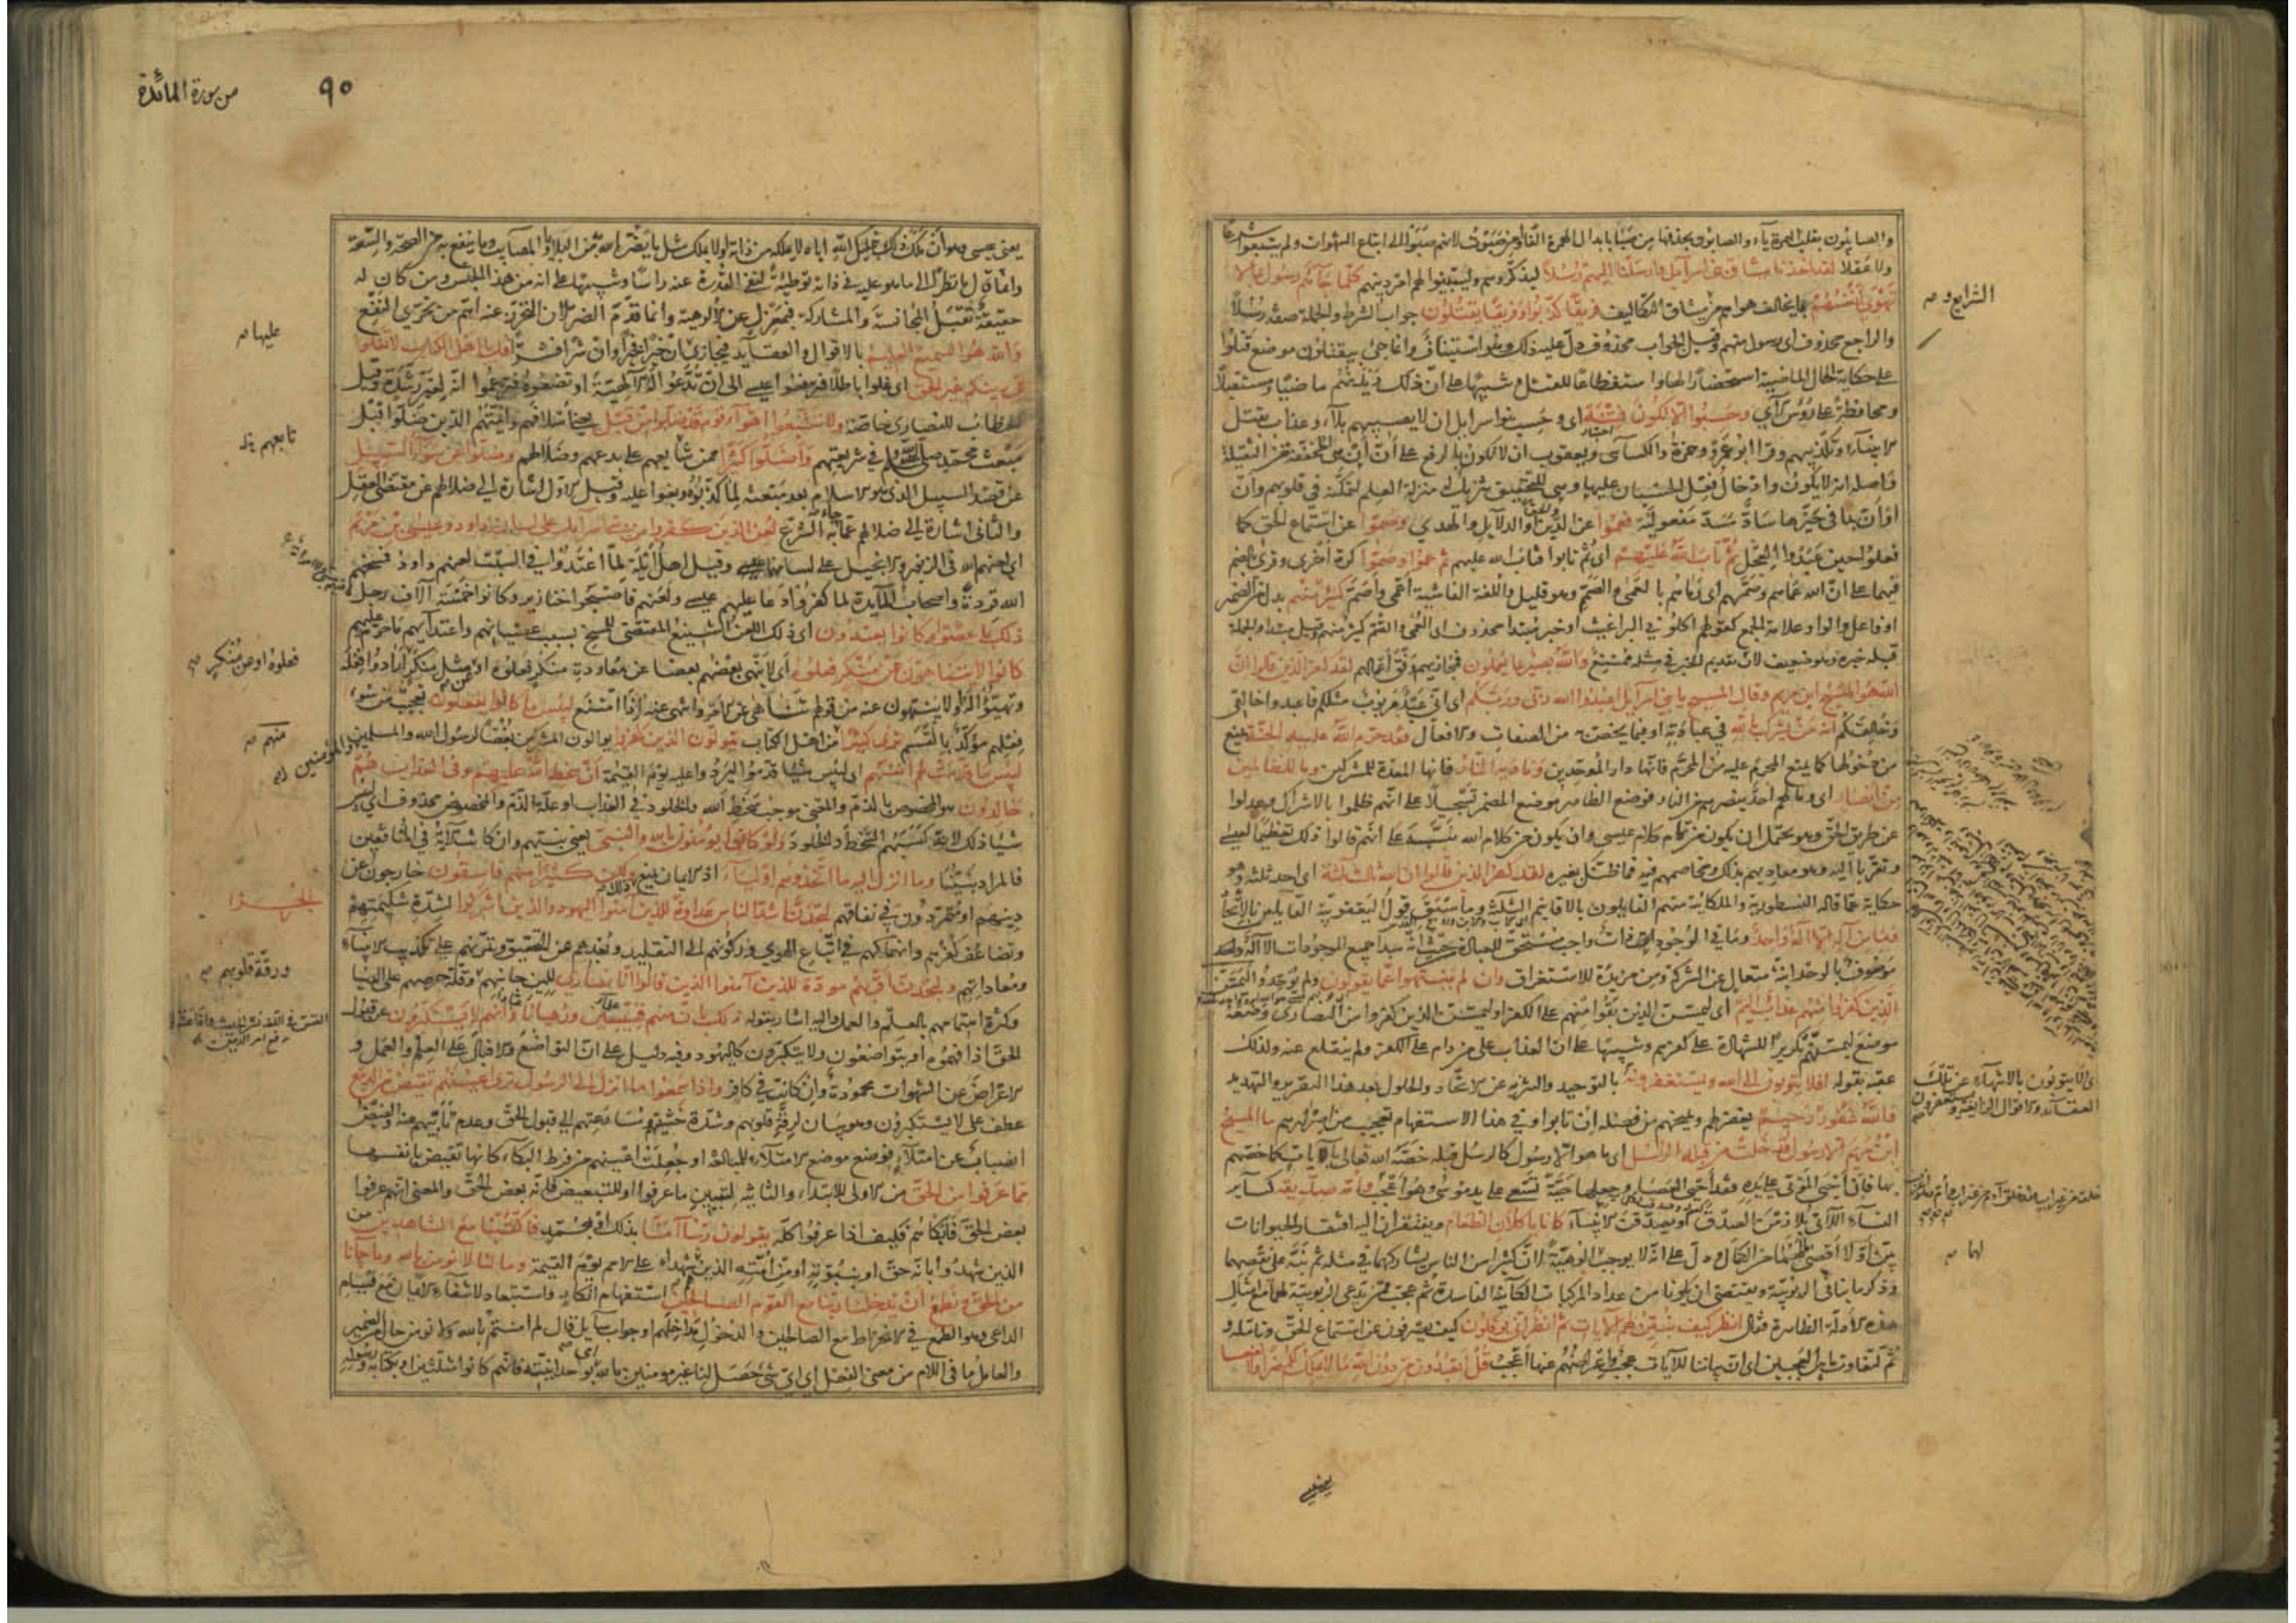 والصابئون بقلب الهمزة ياء والصابون بحذفها من صبا بابدال الهمزة الفا او من صبوت لانهم صبوا الى اتباع الشهوات ولم يتبعوا شرعا
ولا عقلا لقد اخذنا ميثاق بنى اسرآئيل وارسلنا اليهم رسلا ليذكروهم وليبينوا لهم امر دينهم كلما جآءهم رسول بما لا
تهوى انفسهم بما يخالف هواهم من مشاق التكاليف فريقا كذبوا وفريقا يقتلون جواب الشرط والجملة صفة رسلا
والراجع محذوف اى رسول منهم وقيل الجواب محذوف دل عليه ذلك وهو استيناف وانما جئ بيقتلون موضع قتلوا
على حكاية الحال الماضية استحضارا لها واستفظاعا للقتل وتنبيها على ان ذلك ديدنهم ماضيا ومستقبلا
ومحافظة على رؤس الآى وحسبوا الا تكون فتنة اى وحسب بنوا اسرايل ان لا يصيبهم بلآء وعذاب بقتل
الانبيآء وتكذيبهم وقرا ابو عمرو وحمزة والكساىى ويعقوب ان لا تكون بالرفع على ان ان هى المخففة من الثقيلة
واصله انه لا يكون وادخال فعل الحسبان عليها وهى للتحقيق تنزيل له منزلة العلم لتمكنه فى قلوبهم وان
او ان بما فى حيزها ساد مسد مفعوليه فعموا عن الدين او الدلايل والهدى وصموا عن استماع الحق كما
فعلوا حين عبدوا العجل ثم تاب الله عليهم اى ثم تابوا فتاب الله عليهم ثم عموا وصموا كرة اخرى وقرئ بالضم
فيهما على ان الله عماهم وصمهم اى رماهم بالعمى والصمم وهو قليل واللغة الفاشية اعمى واصم كثير منهم بدل من الضمير
او فاعل والواو علامة الجمع كقولهم اكلونى البراغيث او خبر مبتدا محذوف اى العمى والصم كثير منهم وقيل مبتدا والجملة
قبله خبره وهو ضعيف لان تقديم الخبر فى مثله ممتنع والله بصير بما يعملون فيجازيهم وفق اعمالهم لقد كفر الذين قالوا ان
الله هو المسيح ابن مريم وقال المسيح يا بنى اسرآيل اعبدوا الله ربى وربكم اى انى عبد مربوب مثلكم فاعبدوا خالقى
وخالقكم انه من يشرك بالله فى عبادته او فيما يختص به من الصفات والافعال فقد حرم الله عليه الجنة يمنع
من دخولها كما يمنع المحرم عليه من المحرم فانها دار الموحدين وماويه النار فانها المعدة للمشركين وما للظالمين
من انصار اى وما لهم احد ينصرهم من النار فوضع الظاهر موضع المضمر تسجيلا على انهم ظلموا بالاشراك وعدلوا
عن طريق الحق وهو يحتمل ان يكون من تمام كلام عيسى وان يكون من كلام الله نبه به على انهم قالوا ذلك تعظيما لعيسى
وتقربا اليه وهو معاديهم بذلك ومخاصمهم فيه فما ظنك بغيره لقد كفر الذين قالوا ان الله ثالث ثلثة اى احد ثلثة وهو
حكاية عما قاله النسطورية والملكانية منهم القايلون بالاقانيم الثلثة وما سبق قول اليعقوبية القايلين بالاتحاد
وما من اله الا اله واحد وما فى الوجود ذات واجب مستحق للعبادة من حيث انه مبدا جميع الموجودات الا اله واحد
موصوف بالوحدانية متعال عن الشركة ومن مزيدة للاستغراق وان لم ينتهوا عما يقولون ولم يوحدوا ليمسن
الذين كفروا منهم عذاب اليم اى ليمسن الذين بقوا منهم على الكفر او ليمسن الذين كفروا من النصارى وضعه
موضع ليمسنهم تكريرا للشهادة على كفرهم وتنبيها على ان العذاب على من دام على الكفر ولم ينقلع عنه ولذلك
عقبه بقوله افلا يتوبون الى الله ويستغفرونه بالتوحيد والتنزيه عن الاتحاد والحلول بعد هذا التقرير والتهديد
والله غفور رحيم يغفر لهم ويمنحهم من فضله ان تابوا وفى هذا الاستفهام تعجيب من اصرارهم ما المسيح
ابن مريم الا رسول قد خلت من قبله الرسل اى ما هو الا رسول كالرسل قبله خصه الله تعالى بالآيات كما خصهم
بها فان احيى الموتى على يده فقد احيى العصا وجعلها حية تسعى على يد موسى وهو اعجب وامه صديقة كساير
النسآء اللاتى يلازمن الصدق او يصدقن الانبيآء كانا ياكلان الطعام ويفتقران اليه افتقار الحيوانات
بين اولا اقصى ما لهما من الكمال ودل على انه لا يوجب الوهية لان كثيرا من الناس يشاركهما فى مثله ثم نبه على نقصهما
وذكر ما ينافى الربوبية ويقتضى ان يكونا من عداد المركبات الكاينة الفاسدة ثم عجب ممن يدعى الربوبية لهما مع امثال
هذه الادلة الظاهرة فقال انظر كيف نبين لهم الآيات ثم انظر انى يؤفكون كيف يصرفون عن استماع الحق وتامله و
ثم لتفاوت ما بين العجبين اى ان بياننا للآيات عجب واعراضهم عنها اعجب قل اتعبدون من دون الله ما لا يملك لكم ضرا ولا نفعا
الشرايع و صح
اى الا يتوبون بالانتهآء عن تلك
العقآئد والاقوال الزايغة ويستغفرون
لهما صح
يعنى
٩٠
من سورة المائدة
يعنى عيسى وهو وان ملك ذلك بتمليك الله اياه لا يملكه من ذاته ولا يملك مثل ما يضر الله به من البلايا والمصايب وما ينفع به من الصحة والسعة
وانما قال ما نظرا الى ما هو عليه فى ذاته توطئة لنفى القدرة عنه راسا وتنبيها على انه من هذا الجنس ومن كان له
حقيقة تقبل المجانسة والمشاركة فبمعزل عن الالوهية وانما قدم الضر لان التحرز عنه اهم من تحرى النفع
والله هو السميع العليم بالاقوال والعقايد فيجازى ان خيرا فخيرا وان شرا فشرا قل يا اهل الكتاب لا تغلوا
فى دينكم غير الحق اى غلوا باطلا فترفعوا عيسى الى ان تدعوا له الالهية او تضعوه فتزعموا انه لغير رشدة وقيل
الخطاب للنصارى خاصة ولا تتبعوا اهوآء قوم قد ضلوا من قبل يعنى اسلافهم وائمتهم الذين ضلوا قبل
مبعث محمد صلى الله عليه وسلم فى شريعتهم واضلوا كثيرا ممن شايعهم على بدعهم وضلالهم وضلوا عن سوآء السبيل
عن قصد السبيل الذى هو الاسلام بعد مبعثه لما كذبوه وبغوا عليه وقيل الاول اشارة الى ضلالهم عن مقتضى العقل
والثانى اشارة الى ضلالهم عما جاء به الشرع لعن الذين كفروا من بنى اسرآئيل على لسان داود وعيسى بن مريم
اى لعنهم الله فى الزبور والانجيل على لسانهما وقيل اهل ايلة لما اعتدوا فى السبت لعنهم داود فمسخهم
الله قردة واصحاب المآيدة لما كفروا دعا عليهم عيسى ولعنهم فاصبحوا خنازير وكانوا خمسة آلاف رجل
ذلك بما عصوا وكانوا يعتدون اى ذلك اللعن الشنيع المقتضى للمسخ بسبب عصيانهم واعتدآيهم ما حرم عليهم
كانوا لا يتناهون عن منكر فعلوه اى لا ينهى بعضهم بعضا عن معاودة منكر فعلوه او عن مثل منكر ارادوا فعله
وتهيئوا له او لا ينتهون عنه من قولهم تناهى عن الامر وانتهى عنه اذا امتنع لبئس ما كانوا يفعلون تعجيب من سوء
فعلهم مؤكد بالقسم ترى كثيرا من اهل الكتاب يتولون الذين كفروا يوالون المشركين بغضا لرسول الله والمسلمين
لبئس ما قدمت لهم انفسهم اى لبئس شيئا قدموا ليردوا عليه يوم القيمة ان سخط الله عليهم وفى العذاب هم
خالدون هو المخصوص بالذم والمعنى موجب سخط الله والخلود فى العذاب او علة الذم والمخصوص محذوف اى لبئس
شيئا ذلك لانه كسبهم السخط والخلود ولو كانوا يؤمنون بالله والنبى يعنى نبيهم وان كانت الآية فى المنافقين
فالمراد نبينا وما انزل اليه ما اتخذوهم اوليآء اذ الايمان يمنع ذلك ولكن كثيرا منهم فاسقون خارجون عن
دينهم او متمردون فى نفاقهم لتجدن اشد الناس عداوة للذين آمنوا اليهود والذين اشركوا لشدة شكيمتهم
وتضاعف كفرهم وانهماكهم فى اتباع الهوى وركونهم الى التقليد وبعدهم عن التحقيق وتمرنهم على تكذيب الانبيآء
ومعاداتهم ولتجدن اقربهم مودة للذين آمنوا الذين قالوا انا نصارى للين جانبهم وقلة حرصهم على الدنيا
وكثرة اهتمامهم بالعلم والعمل واليه اشار بقوله ذلك بان منهم قسيسين ورهبانا وانهم لا يستكبرون عن قبول
الحق اذا فهموه او يتواضعون ولا يتكبرون كاليهود وفيه دليل على ان التواضع والاقبال على العلم والعمل و
الاعراض عن الشهوات محمودة وان كانت فى كافر واذا سمعوا ما انزل الى الرسول ترى اعينهم تفيض من الدمع
عطف على لا يستكبرون وهو بيان لرقة قلوبهم وشدة خشيتهم ومسارعتهم الى قبول الحق وعدم تأبيهم عنه والفيض
انصباب عن امتلآء فوضع موضع الامتلآء للمبالغة او جعلت اعينهم من فرط البكآء كانها تفيض بانفسها
مما عرفوا من الحق من الاولى للابتداء والثانية لتبيين ما عرفوا او للتبعيض فانه بعض الحق والمعنى انهم عرفوا
بعض الحق فابكاهم فكيف اذا عرفوا كله يقولون ربنا آمنا بذلك او بمحمد فاكتبنا مع الشاهدين من
الذين شهدوا بانه حق او بنبوته او من امته الذين هم شهداء على الامم يوم القيمة وما لنا لا نؤمن بالله وما جآءنا
من الحق ونطمع ان يدخلنا ربنا مع القوم الصالحين استفهام انكار واستبعاد لانتفآء الايمان مع قيام
الداعى وهو الطمع فى الانخراط مع الصالحين والدخول مداخلهم او جواب سآيل قال لم امنتم بالله ولا نؤمن حال من الضمير
والعامل ما فى اللام من معنى الفعل اى اى شئ حصل لنا غير مومنين بالله اى بوحدانيته فانهم كانوا مثلثين او بكتابه ورسوله
عليها صح
تابعهم
فعلوه او عن منكر صح
منهم صح
والمؤمنين
الجزء
ورقة قلوبهم صح